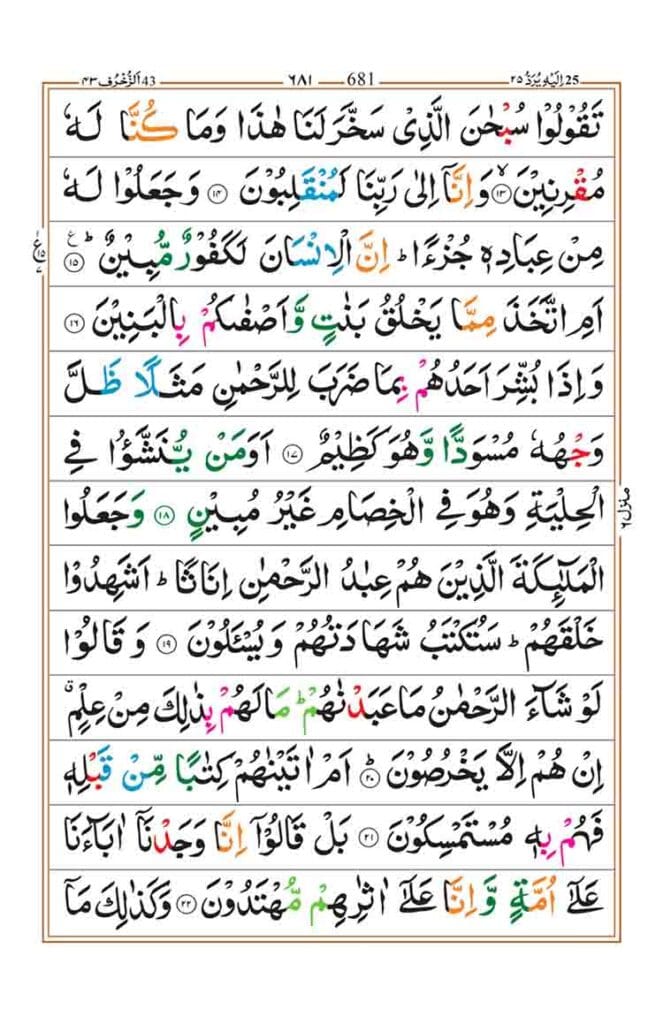 25 اِلَيْهِ يُرَدُّ ٢٥ ٦٨١ 681 43 اَلزُّخْرُف ٤٣
تَقُوْلُوْا سُبْحٰنَ الَّذِىْ سَخَّرَ لَنَا هٰذَا وَمَا كُنَّا لَهٗ
مُقْرِنِيْنَ ۙ‏ ﴿۱۳﴾ وَاِنَّاۤ اِلٰى رَبِّنَا لَمُنْقَلِبُوْنَ‏ ﴿۱۴﴾ وَجَعَلُوْا لَهٗ
مِنْ عِبَادِهٖ جُزْءًا‌ ؕ اِنَّ الْاِنْسَانَ لَـكَفُوْرٌ مُّبِيْنٌ ؕ ﴿۱۵﴾
اَمِ اتَّخَذَ مِمَّا يَخْلُقُ بَنٰتٍ وَّاَصْفٰٮكُمْ بِالْبَنِيْنَ‏ ﴿۱۶﴾
وَاِذَا بُشِّرَ اَحَدُهُمْ بِمَا ضَرَبَ لِلرَّحْمٰنِ مَثَلًا ظَلَّ
وَجْهُهٗ مُسْوَدًّا وَّهُوَ كَظِيْمٌ‏ ﴿۱۷﴾ اَوَمَنْ يُّنَشَّؤُا فِى
الْحِلْيَةِ وَهُوَ فِى الْخِصَامِ غَيْرُ مُبِيْنٍ‏ ﴿۱۸﴾ وَجَعَلُوا
الْمَلٰٓئِكَةَ الَّذِيْنَ هُمْ عِبٰدُ الرَّحْمٰنِ اِنَاثًا‌ ؕ اَشَهِدُوْا
خَلْقَهُمْ‌ ؕ سَتُكْتَبُ شَهَادَتُهُمْ وَيُسْئَلُوْنَ‏ ﴿۱۹﴾ وَقَالُوْا
لَوْ شَآءَ الرَّحْمٰنُ مَا عَبَدْنٰهُمْ‌ ؕ مَا لَهُمْ بِذٰلِكَ مِنْ عِلْمٍ‌ ۗ
اِنْ هُمْ اِلَّا يَخْرُصُوْنَؕ‏ ﴿۲۰﴾ اَمْ اٰتَيْنٰهُمْ كِتٰبًا مِّنْ قَبْلِهٖ
فَهُمْ بِهٖ مُسْتَمْسِكُوْنَ‏ ﴿۲۱﴾ بَلْ قَالُوْۤا اِنَّا وَجَدْنَاۤ اٰبَآءَنَا
عَلٰٓى اُمَّةٍ وَّاِنَّا عَلٰٓى اٰثٰرِهِمْ مُّهْتَدُوْنَ‏ ﴿۲۲﴾ وَكَذٰلِكَ مَاۤ
منزل ٦